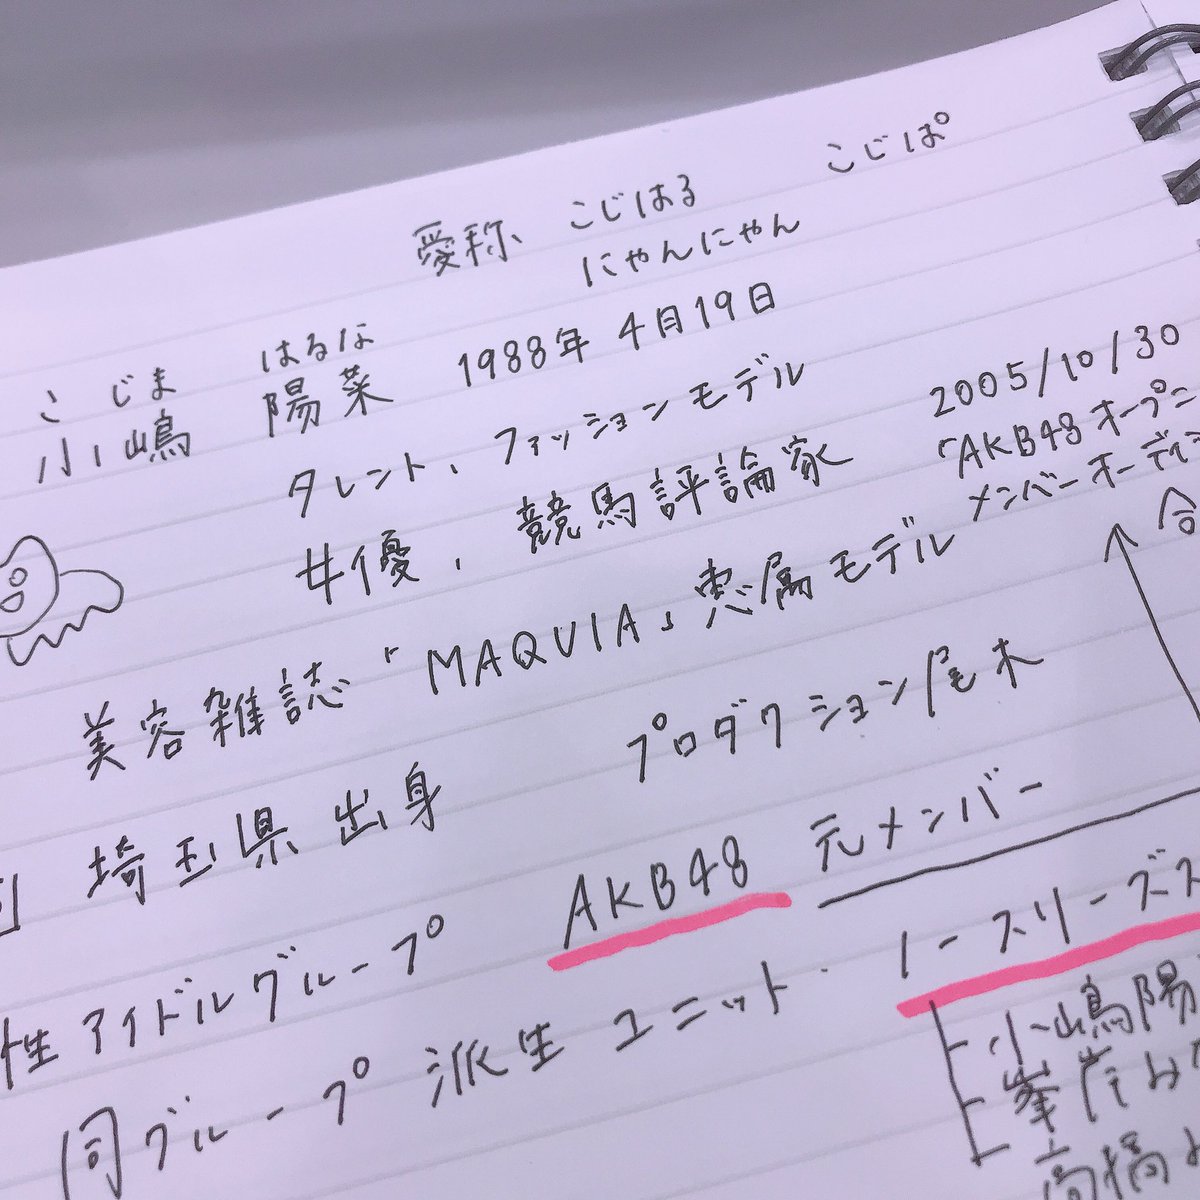 こじぱ
愛称 こじはる
にゃんにゃん
こじま はるな
小嶋 陽菜 1988年4月19日
タレント、ファッションモデル
女優、競馬評論家
2005/10/30
「AKB48オープニ
メンバーオーディ
美容雑誌「MAQUIA」専属モデル
合
埼玉県出身 プロダクション尾木
性アイドルグループ AKB48 元メンバー
同グループ派生ユニット ノースリーブス
小嶋陽
峯岸み
高橋み